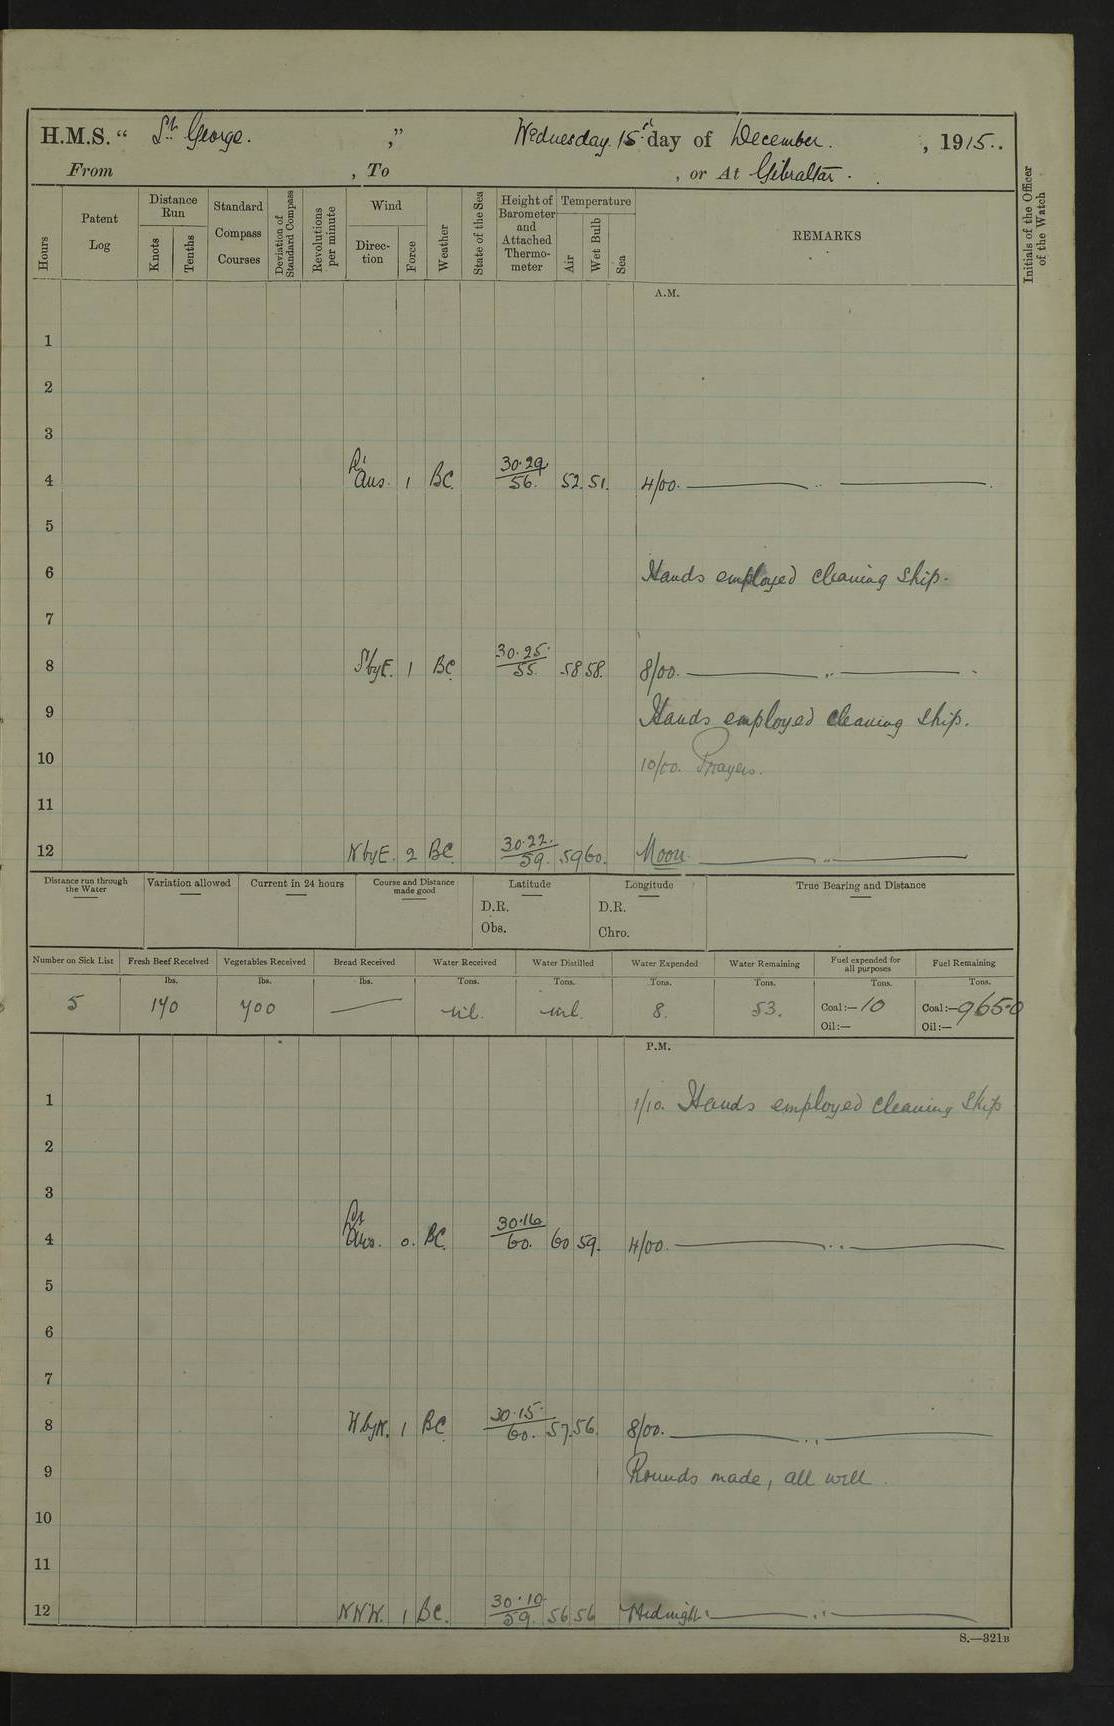 H.M.S. “ St. George. ” Wednesday. 15th day of December. , 1915.
From , To , or At Gibraltar.
Hours
Patent Log
Distance Run
Knots
Tenths
Standard Compass Courses
Deviation of Standard Compass
Revolutions per minute
Wind
Direction
Force
Weather
State of the Sea
Height of Barometer and Attached Thermometer
Temperature
Air
Wet Bulb
Sea
REMARKS
Initials of the Officer of the Watch
A.M.
1
2
3
4 Aus. 1 BC. 30.29/56. 52. 51. 4/00. ——— „ ———
5
6 Hands employed cleaning ship.
7
8 SbyE. 1 BC. 30.25/55. 58 58. 8/00. ——— „ ———
9 Hands employed cleaning ship.
10 10/00. Prayers.
11
12 NbyE. 2 BC. 30.22./59. 59 60. Noon ——— „ ———
Distance run through the Water
Variation allowed
Current in 24 hours
Course and Distance made good
Latitude
D.R.
Obs.
Longitude
D.R.
Chro.
True Bearing and Distance
Number on Sick List Fresh Beef Received Vegetables Received Bread Received Water Received Water Distilled Water Expended Water Remaining Fuel expended for all purposes Fuel Remaining
lbs. lbs. lbs. Tons. Tons. Tons. Tons. Tons. Tons.
5 140 700 — nil. nil. 8. 53. Coal:— 10 Coal:— 965.0
Oil:— Oil:—
P.M.
1 1/10. Hands employed cleaning ship
2
3
4 0. BC. 30.16/60. 60 59. 4/00. ——— „ ———
5
6
7
8 WbyN. 1 BC 30.15./60. 57. 56. 8/00. ——— „ ———
9 Rounds made, all well.
10
11
12 NNW. 1 BC. 30.10/59. 56 56 Midnight. ——— „ ———
S.—321B